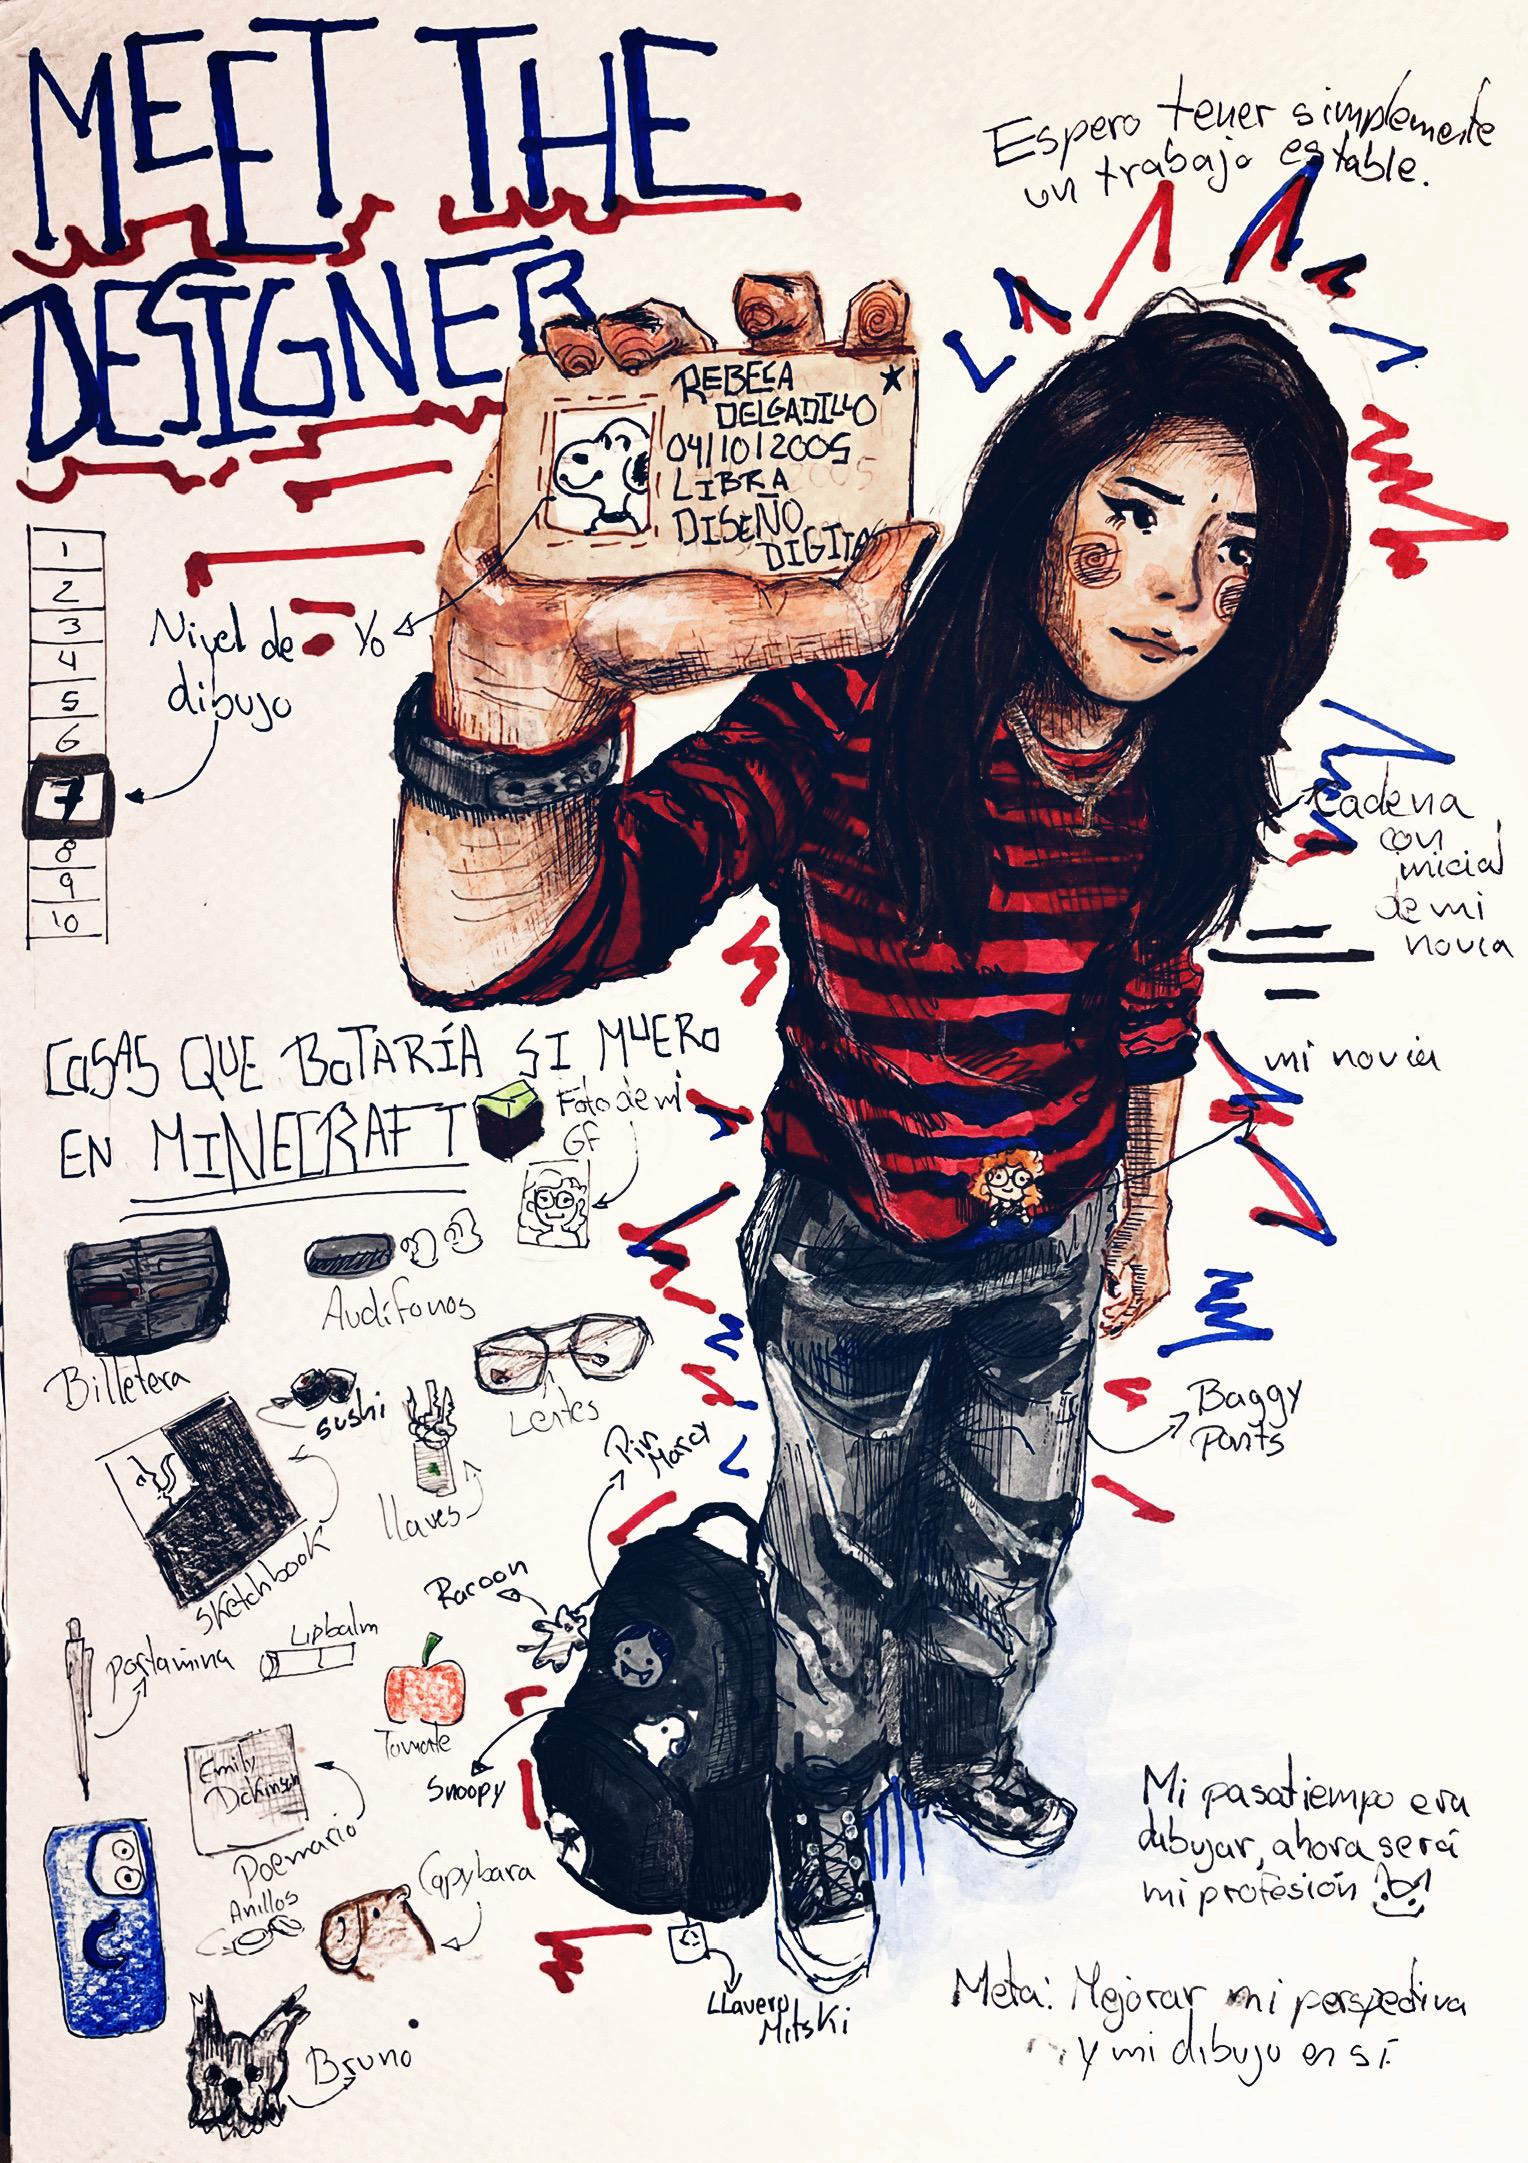 MEET THE
DESIGNER
Espero tener simplemente
un trabajo estable.
REBECA
DELGADILLO
04/10/2005
LIBRA
DISEÑO
DIGITAL
1
2
3
4
5
6
7
8
9
10
Nivel de
dibujo
Yo
Cadena
con
inicial
de mi
novia
mi novia
COSAS QUE BOTARÍA SI MUERO
EN MINECRAFT
Foto de mi
GF
Billetera
Audífonos
Lentes
sushi
llaves
sketchbook
Pin
Marcy
Baggy
Pants
Racoon
portamina
Lipbalm
Tomate
Snoopy
Emily
Dickinson
Poemario
Anillos
Capybara
Bruno
Llavero
Mitski
Mi pasatiempo era
dibujar, ahora será
mi profesión
Meta: Mejorar mi perspectiva
y mi dibujo en sí.